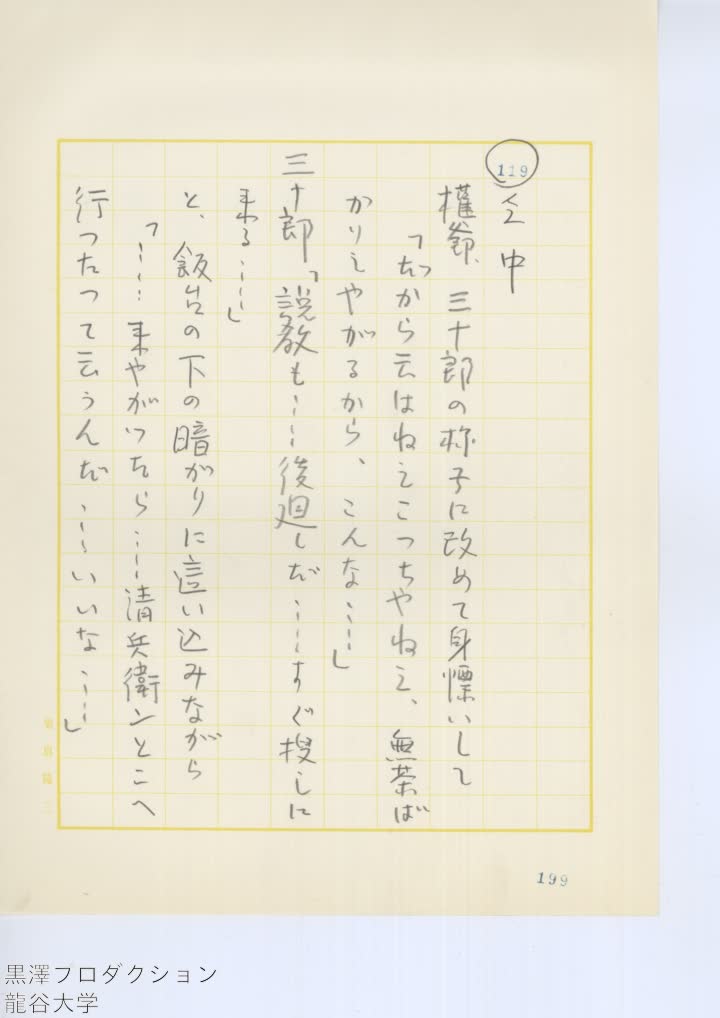 119
仝中
権爺、三十郎の様子に改めて身慄いして
「だから云はねえこっちやねえ、無茶ば
かりしやがるから、こんな……」
三十郎「説教も……後廻しだ……すぐ捜しに
来る……」
と、飯台の下の暗がりに這い込みながら
「……来やがつたら……清兵衛ンとこへ
行つたつて云うんだ……いいな……」
199
黒澤プロダクション
龍谷大学